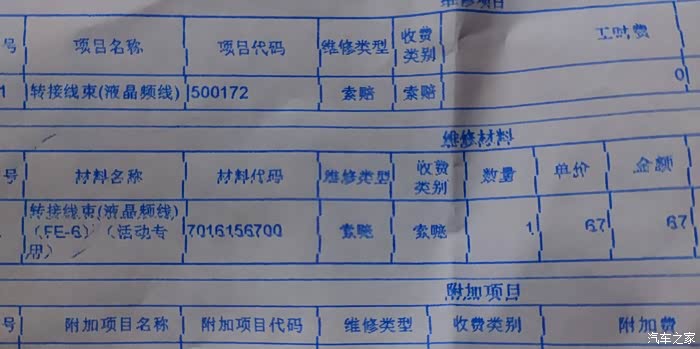 维修项目
号 项目名称 项目代码 维修类型 收费类别 工时费
1 转接线束(液晶频线) 500172 索赔 索赔 0
维修材料
号 材料名称 材料代码 维修类型 收费类别 数量 单价 金额
转接线束(液晶频线)(FE-6)(活动专用) 7016156700 索赔 索赔 1 67 67
附加项目
号 附加项目名称 附加项目代码 维修类型 收费类别 附加费
汽车之家